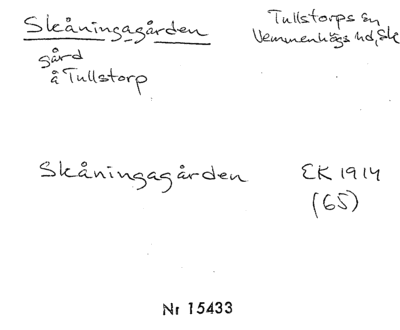 Skåningagården
Tullstorps sn
Vemmenhögs hd, Sk
gård
å Tullstorp
Skåningagården EK 1914
(65)
Nr 15433